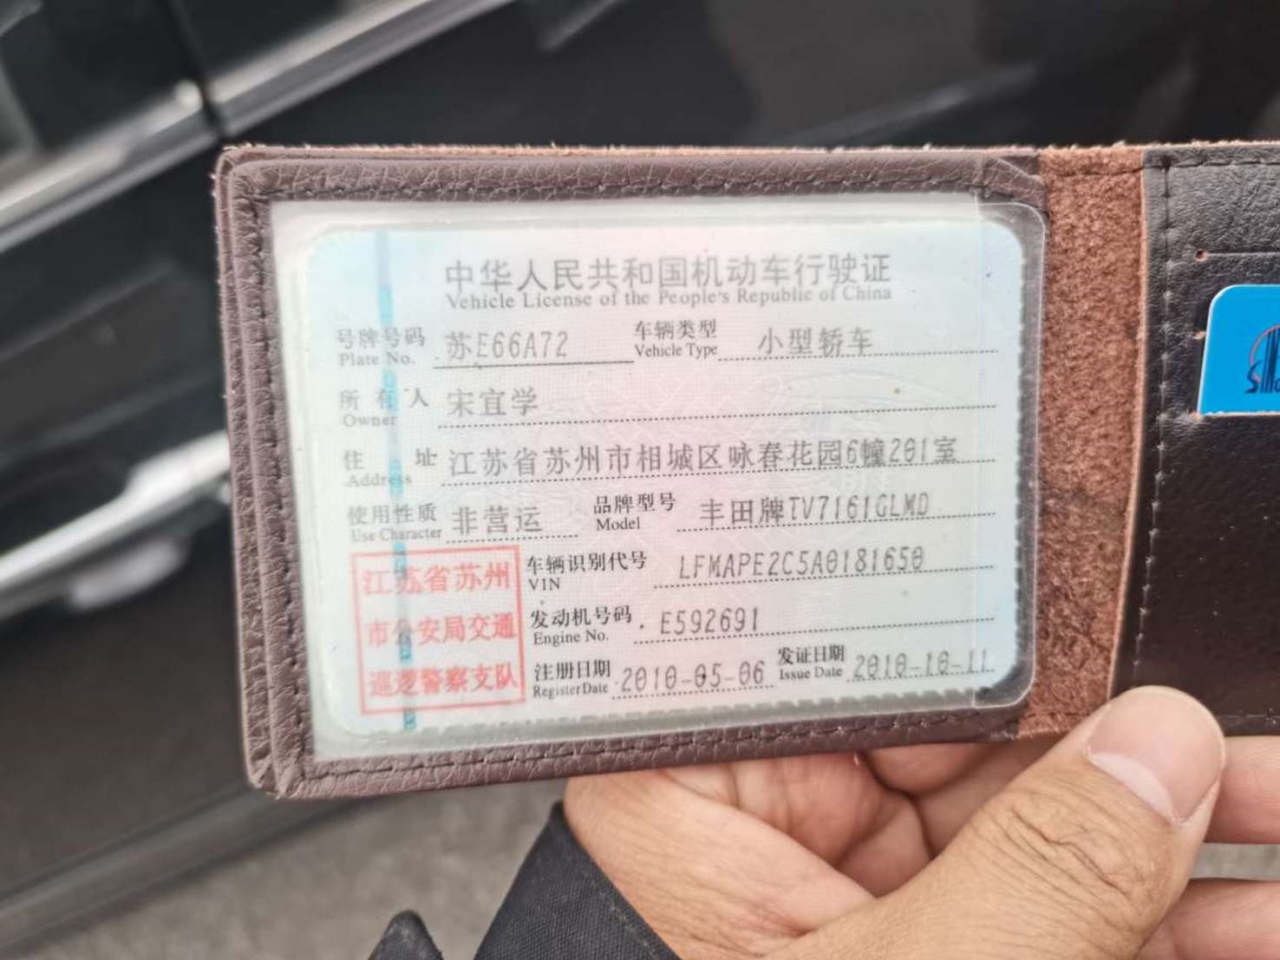 中华人民共和国机动车行驶证
Vehicle License of the People's Republic of China
号牌号码 苏E66A72 车辆类型 小型轿车
Plate No. Vehicle Type
所有人 宋宜学
Owner
住址 江苏省苏州市相城区咏春花园6幢201室
Address
使用性质 非营运 品牌型号 丰田牌TV7161GLMD
Use Character Model
江苏省苏州
市公安局交通
巡逻警察支队
车辆识别代号 LFMAPE2C5A0181650
VIN
发动机号码 E592691
Engine No.
注册日期 2010-05-06 发证日期 2010-10-11
Register Date Issue Date